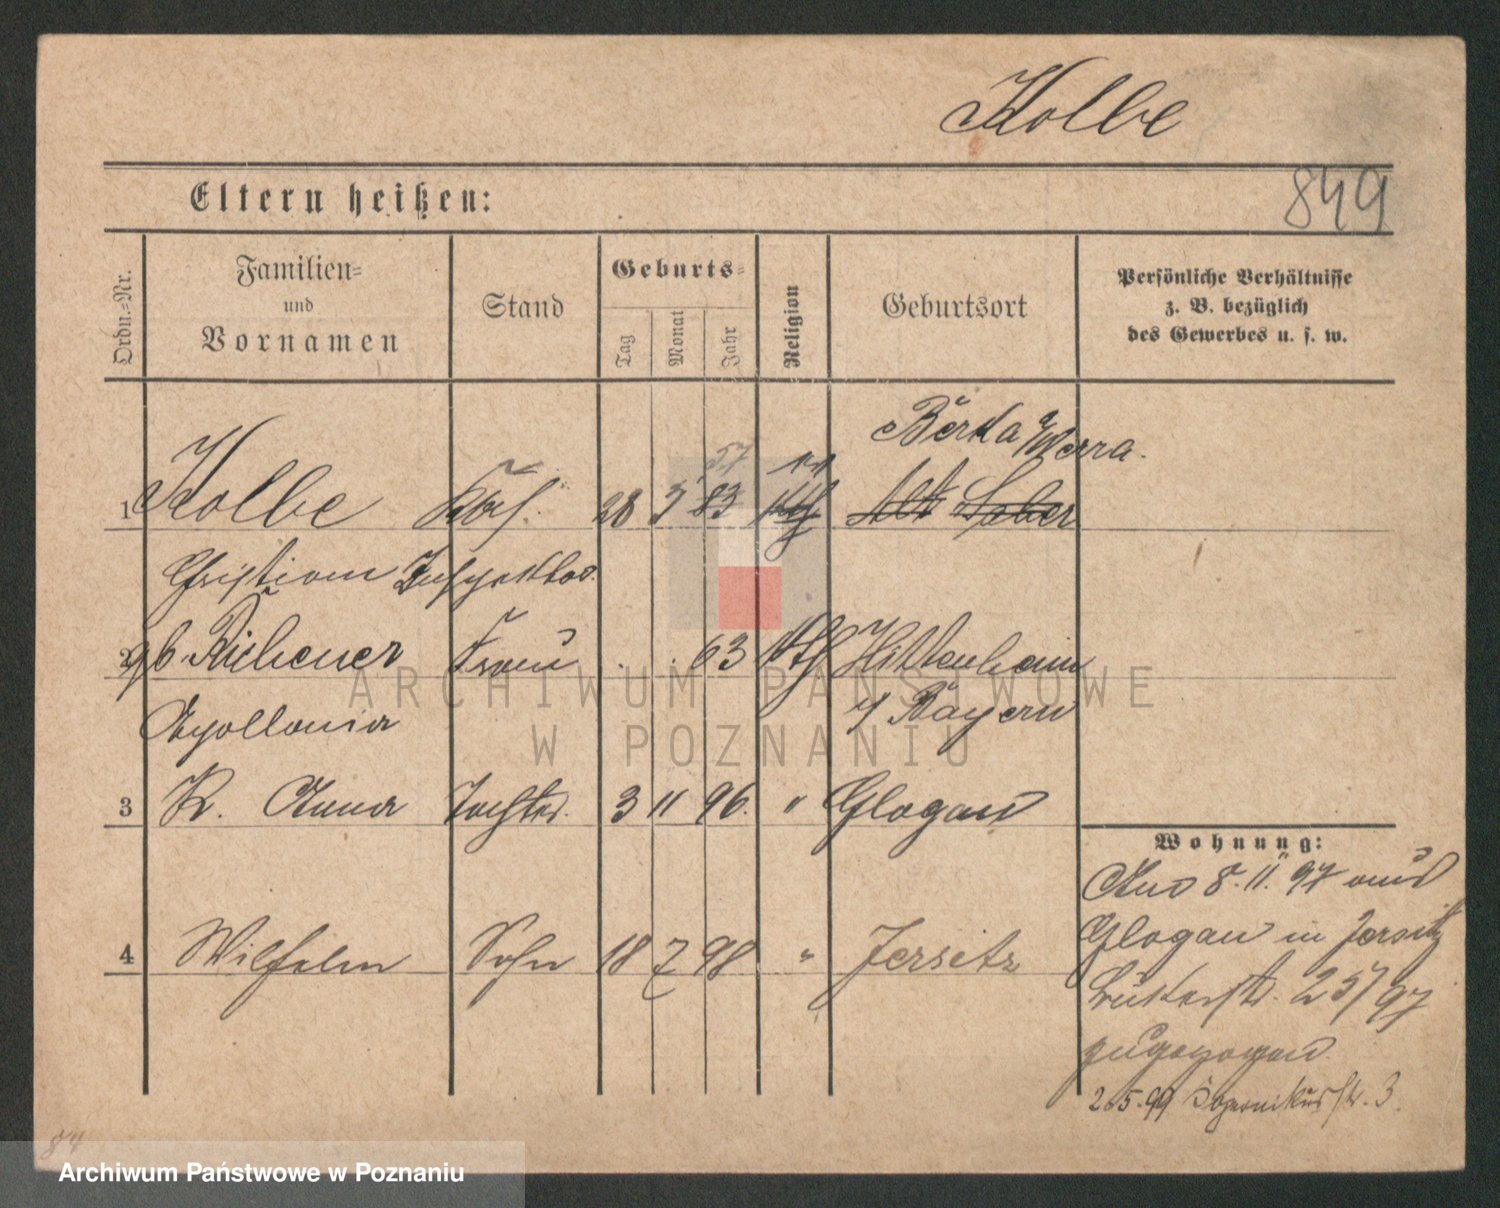 Kolbe
849
Eltern heißen:
Ordn.=Nr.
Familien=
und
Vornamen
Stand
Geburts=
Tag
Monat
Jahr
Religion
Geburtsort
Persönliche Verhältnisse
z. B. bezüglich
des Gewerbes u. s. w.
Berka a/Werra.
57
1 Kolbe 28 3 83 Kth Alt
Christian Inspektor.
2 gb. Frau . . 63 Kth Hüttenheim
Apollonia i/ Bayern
3 K. Anna Tochter. 3 11 96. " Glogau
Wohnung:
Am 5. 11. 97 aus
4 Wilhelm Sohn 18 7 98 " Jersitz
Glogau in Jersitz
25/97
zugezogen.
2.5.99 3.
84
ARCHIWUM PAŃSTWOWE
W POZNANIU
Archiwum Państwowe w Poznaniu